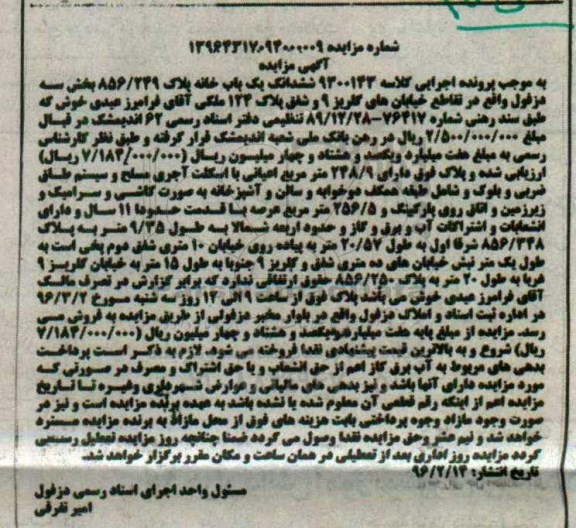 شماره مزایده ۱۳۹۶۴۳۱۷۰۹۴۰۰۰۰۰۹
آگهی مزایده
به موجب پرونده اجرایی کلاسه ۹۳۰۰۱۴۳ ششدانگ یک باب خانه پلاک ۸۵۶/۲۴۹ بخش سه
دزفول واقع در تقاطع خیابان های گلریز ۹ و شفق پلاک ۱۳۴ ملکی آقای فرامرز عبدی خوش که
طبق سند رهنی شماره ۷۶۴۱۷-۸۹/۱۲/۲۸ تنظیمی دفتر اسناد رسمی ۶۲ اندیمشک در قبال
مبلغ ۲/۵۰۰/۰۰۰/۰۰۰ ریال در رهن بانک ملی شعبه اندیمشک قرار گرفته و طبق نظر کارشناس
رسمی به مبلغ هفت میلیارد ویکصد و هشتاد و چهار میلیون ریال (۷/۱۸۴/۰۰۰/۰۰۰ ریال)
ارزیابی شده و پلاک فوق دارای ۲۴۸/۹ متر مربع اعیانی با اسکلت آجری مسلح و سیستم طاق
ضربی و بلوک و شامل طبقه همکف دوخوابه و سالن و آشپزخانه به صورت کاشی و سرامیک و
زیرزمین و اتاق روی پارکینگ و ۲۵۶/۵ متر مربع عرصه با قدمت حدودا ۱۱ سال و دارای
انشعابات و اشتراکات آب و برق و گاز و حدود اربعه شمالا به طول ۹/۳۵ متر به پلاک
۸۵۶/۳۴۸ شرقا اول به طول ۲۰/۵۷ متر به پیاده روی خیابان ۱۰ متری شفق دوم پخی است به
طول یک متر نبش خیابان های ده متری شفق و گلریز ۹ جنوبا به طول ۱۵ متر به خیابان گلریز ۹
غربا به طول ۲۰ متر به پلاک ۸۵۶/۲۵۰ حقوق ارتفاقی ندارد که برابر گزارش در تصرف مالک
آقای فرامرز عبدی خوش می باشد پلاک فوق از ساعت ۹ الی ۱۲ روز سه شنبه مورخ ۹۶/۳/۲
در اداره ثبت اسناد و املاک دزفول واقع در بلوار مخبر دزفولی از طریق مزایده به فروش می
رسد. مزایده از مبلغ پایه هفت میلیارد ویکصد و هشتاد و چهار میلیون ریال (۷/۱۸۴/۰۰۰/۰۰۰
ریال) شروع و به بالاترین قیمت پیشنهادی نقدا فروخته می شود. لازم به ذکر است پرداخت
بدهی های مربوط به آب برق گاز اعم از حق انشعاب و یا حق اشتراک و مصرف در صورتی که
مورد مزایده دارای آنها باشد و نیز بدهی های مالیاتی و عوارض شهرداری وغیره تا تاریخ
مزایده اعم از اینکه رقم قطعی آن معلوم شده یا نشده باشد به عهده برنده مزایده است و نیز در
صورت وجود مازاد وجوه پرداختی بابت هزینه های فوق از محل مازاد به برنده مزایده مسترد
خواهد شد و نیم عشر وحق مزایده نقدا وصول می گردد ضمنا چنانچه روز مزایده تعطیل رسمی
گردد مزایده روز اداری بعد از تعطیلی در همان ساعت و مکان مقرر برگزار خواهد شد.
تاریخ انتشار: ۹۶/۲/۱۳
مسئول واحد اجرای اسناد رسمی دزفول
امیر تفرقی